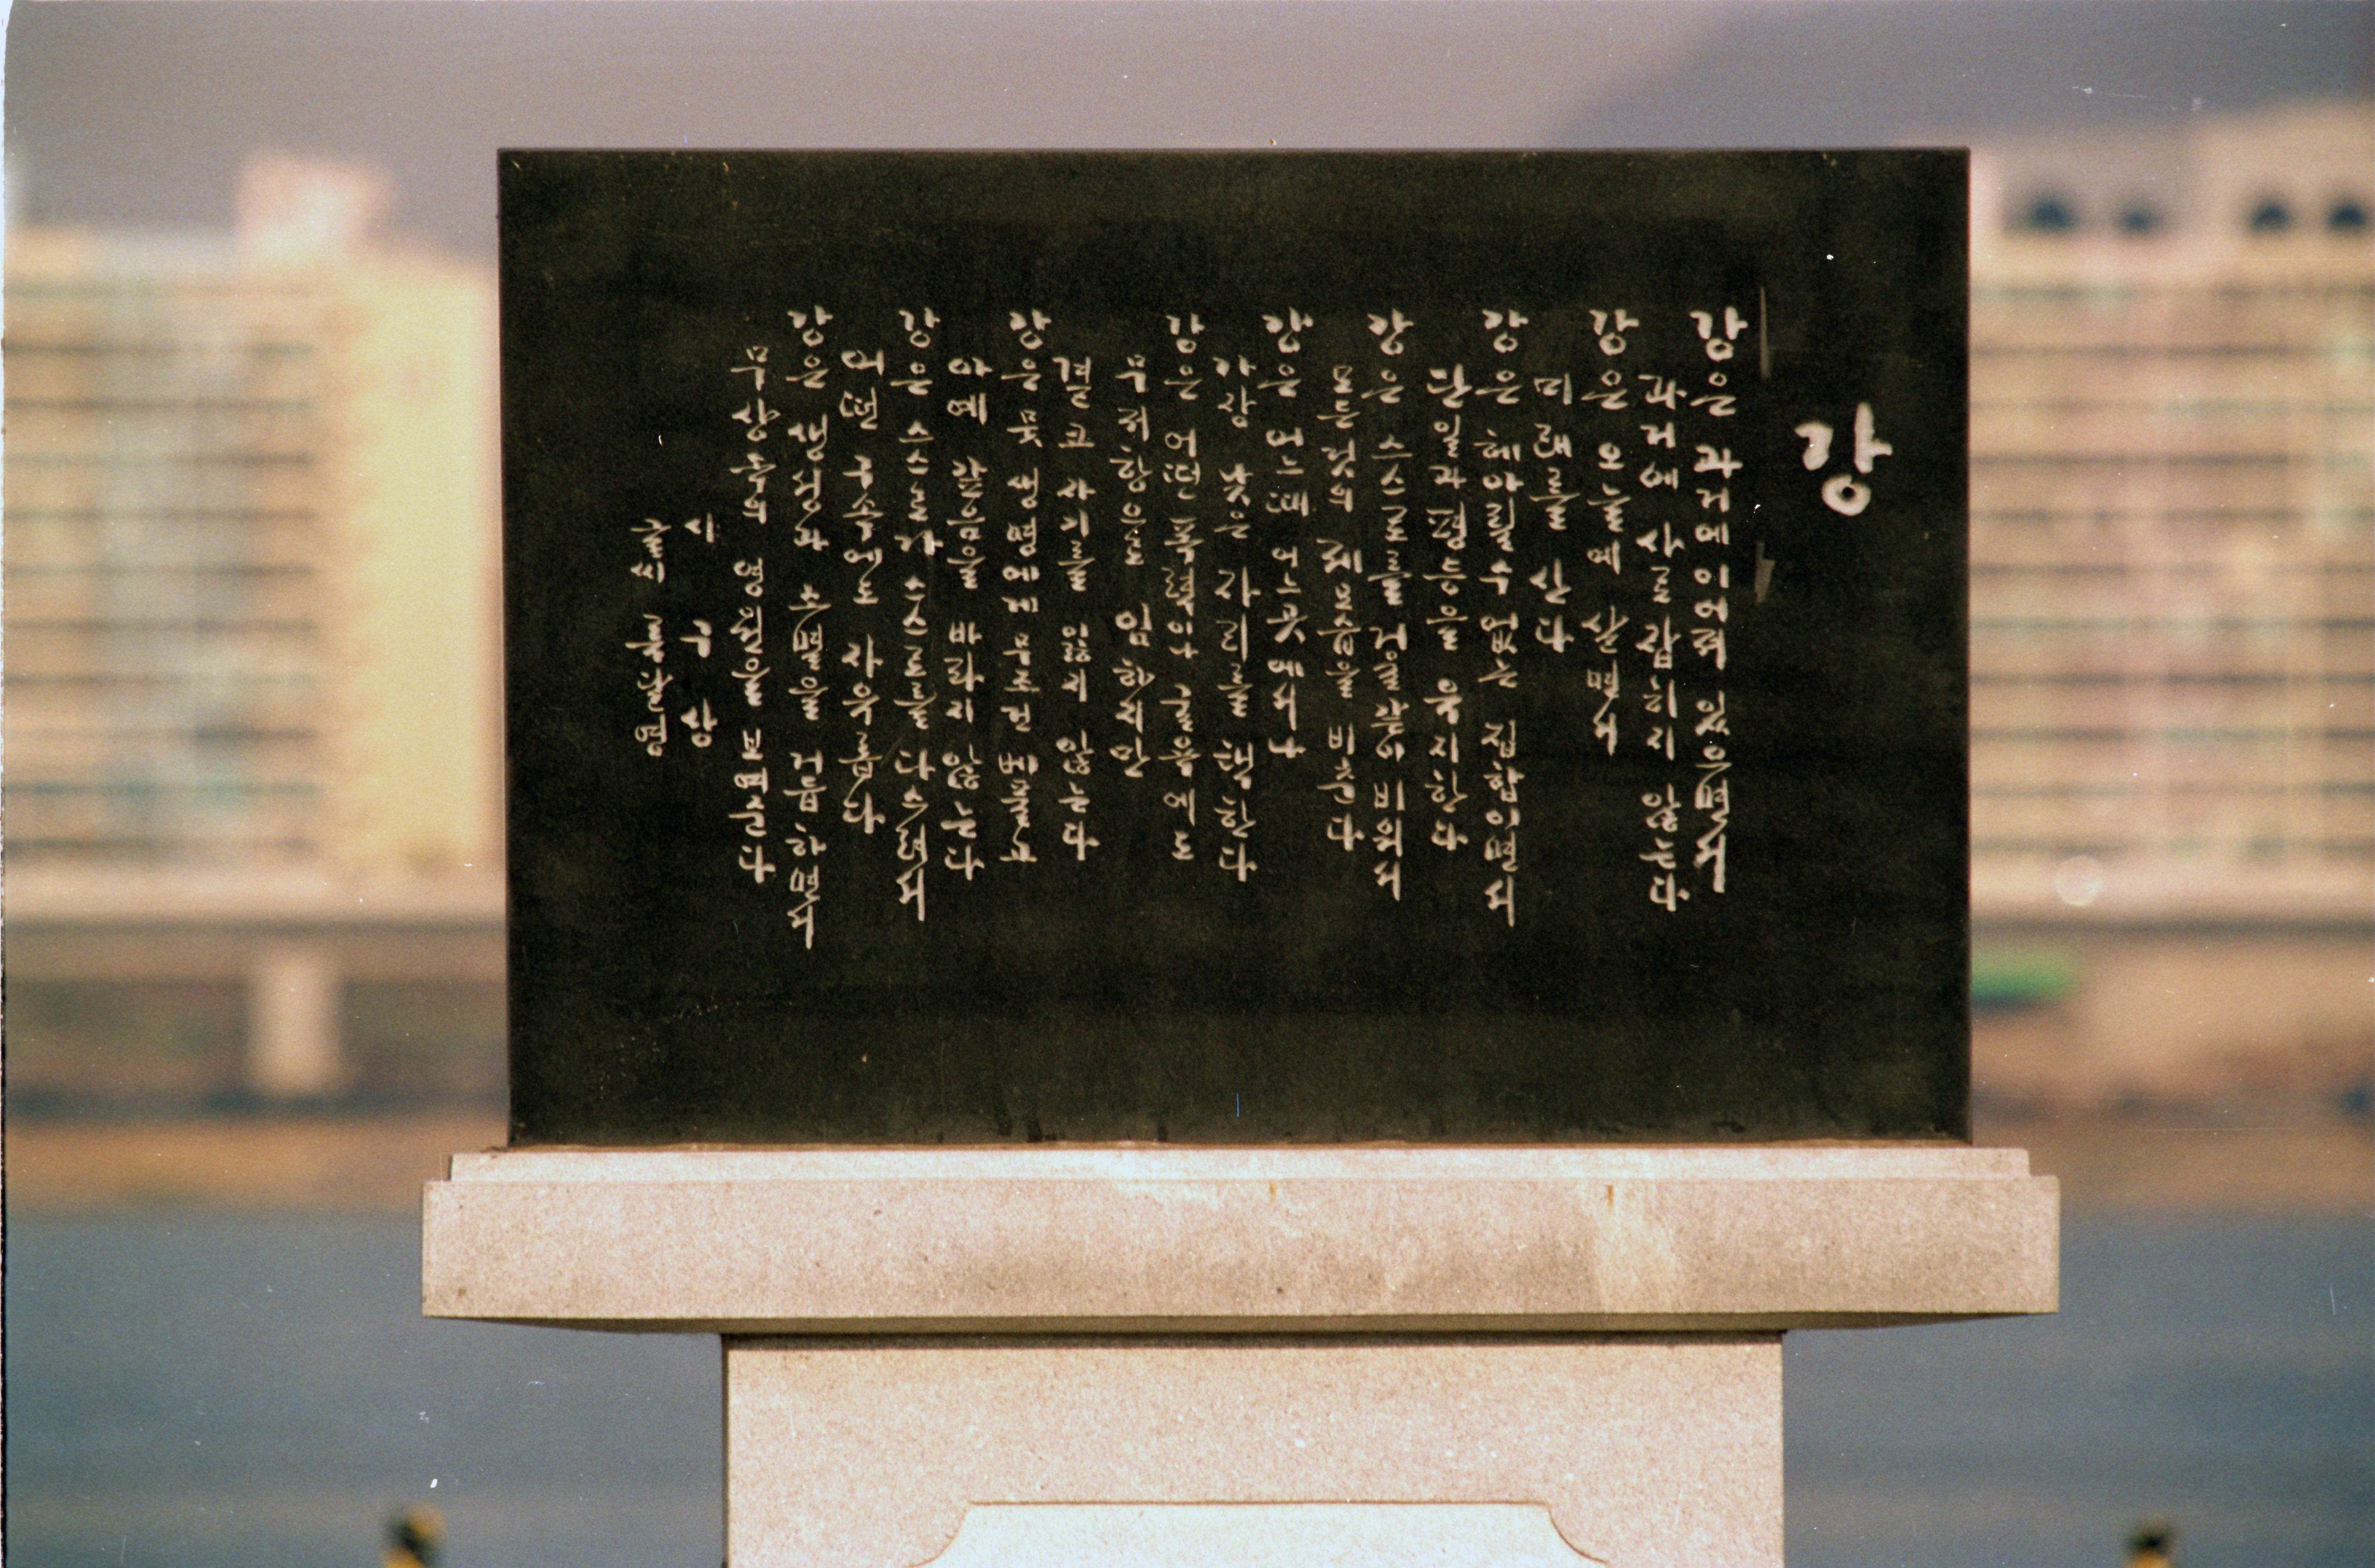 강
강은 과거에 이어져 있으면서
과거에 사로잡히지 않는다
강은 오늘에 살면서
미래를 산다
강은 헤아릴수 없는 집합이면서
단일과 평등을 유지한다
강은 스스로를 거울같이 비워서
모든것의 제모습을 비춘다
강은 어느때 어느곳에서나
가장 낮은 자리를 택한다
강은 어떤 폭력이나 굴욕에도
무저항으로 임하지만
결코 자기를 잃지 않는다
강은 뭇 생명에게 무조건 베풀고
아예 갚음을 바라지 않는다
강은 스스로가 스스로를 다스려서
어떤 구속에도 자유롭다
강은 생성과 소멸을 거듭하면서
무상속의 영원을 보여준다
시 구상